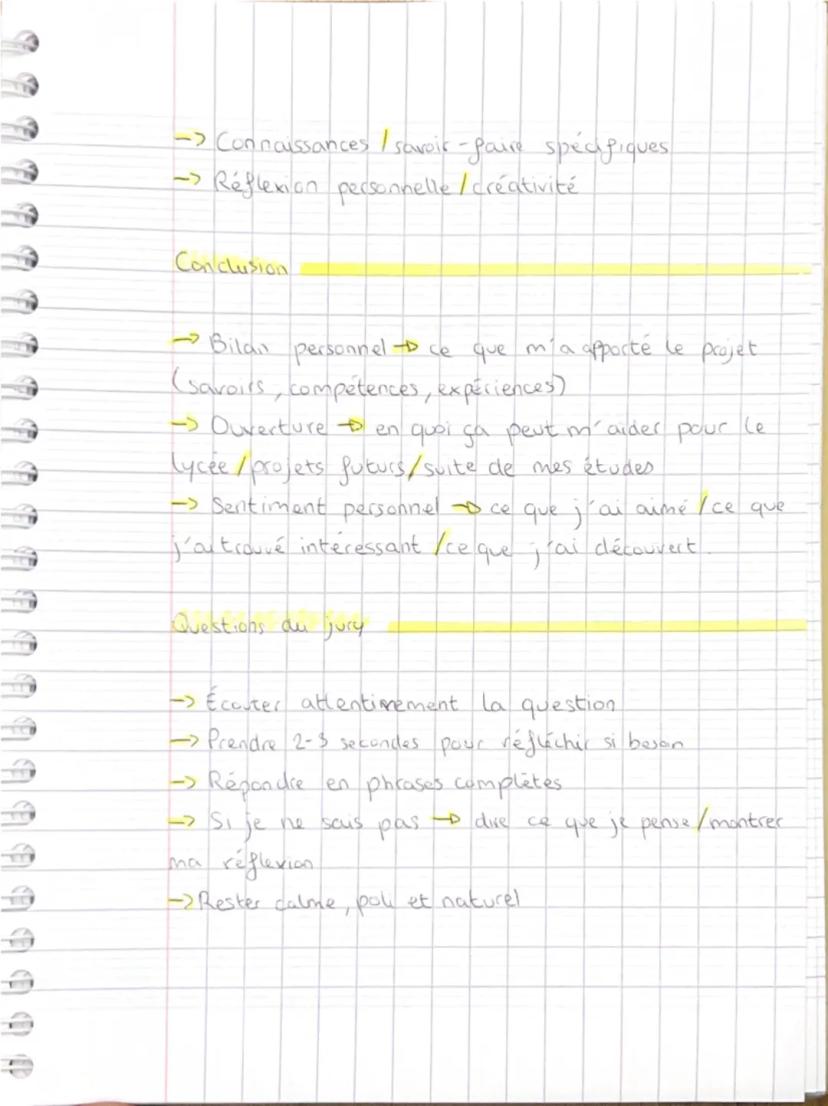 → Connaissances / savoir-faire spécifiques
→ Réflexion personnelle / créativité
Conclusion
→ Bilan personnel → ce que m'a apporté le projet
(savoirs, compétences, expériences)
→ Ouverture → en quoi ça peut m'aider pour le
lycée / projets futurs / suite de mes études
→ Sentiment personnel → ce que j'ai aimé / ce que
j'ai trouvé intéressant / ce que j'ai découvert.
Questions du jury
→ Écouter attentivement la question
→ Prendre 2-3 secondes pour réfléchir si besoin
→ Répondre en phrases complètes
→ Si je ne sais pas → dire ce que je pense / montrer
ma réflexion
→ Rester calme, poli et naturel